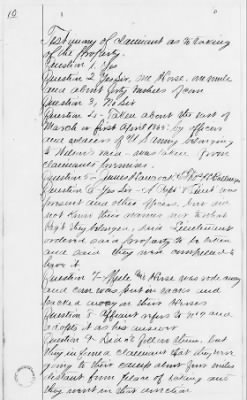 10
Testimony of claimant as to taking
of the Property
Question 1. Yes
Question 2 Yes Sir, one Horse, one mule
and about forty bushels of corn
Question 3, No Sir
Question 4 - Taken about the last of
March or first April 1865: by officers
and soldiers of U S Army belonging
to men - was taken from
claimants premises.
Question 5 - James Hancock &
Question 6 Yes Sir - A Capt & Lieut was
present and other officers, but did
not know their names nor to what
Regt they belonged, said Lieutenant
ordered said property to be taken
and said they was compelled to
have it
Question 7 - Mule & Horse was rode away
and corn was put in sacks and
packed away on their Horses
Question 8 Affiant refers to No 7 and
adopts it as his answer
Question 9 Did not follow them, but
they informed claimant that they were
going to their camps about four miles
distant from place of taking and
they went in that direction